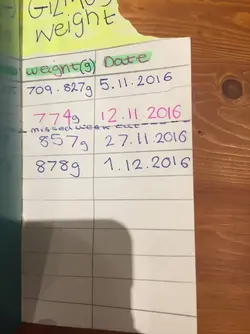 Gizmos
weight
weight(g) Date
709.827g 5.11.2016
774g 12.11.2016
missed week out
857g 27.11.2016
878g 1.12.2016